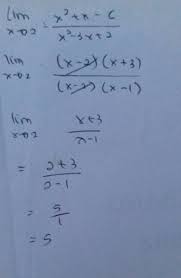 lim x→2 = x² + x - 6 / x² - 3x + 2
lim x→2 (x-2) (x+3) / (x-2) (x-1)
lim x→2 x+3 / x-1
= 2+3 / 2-1
= 5 / 1
= 5